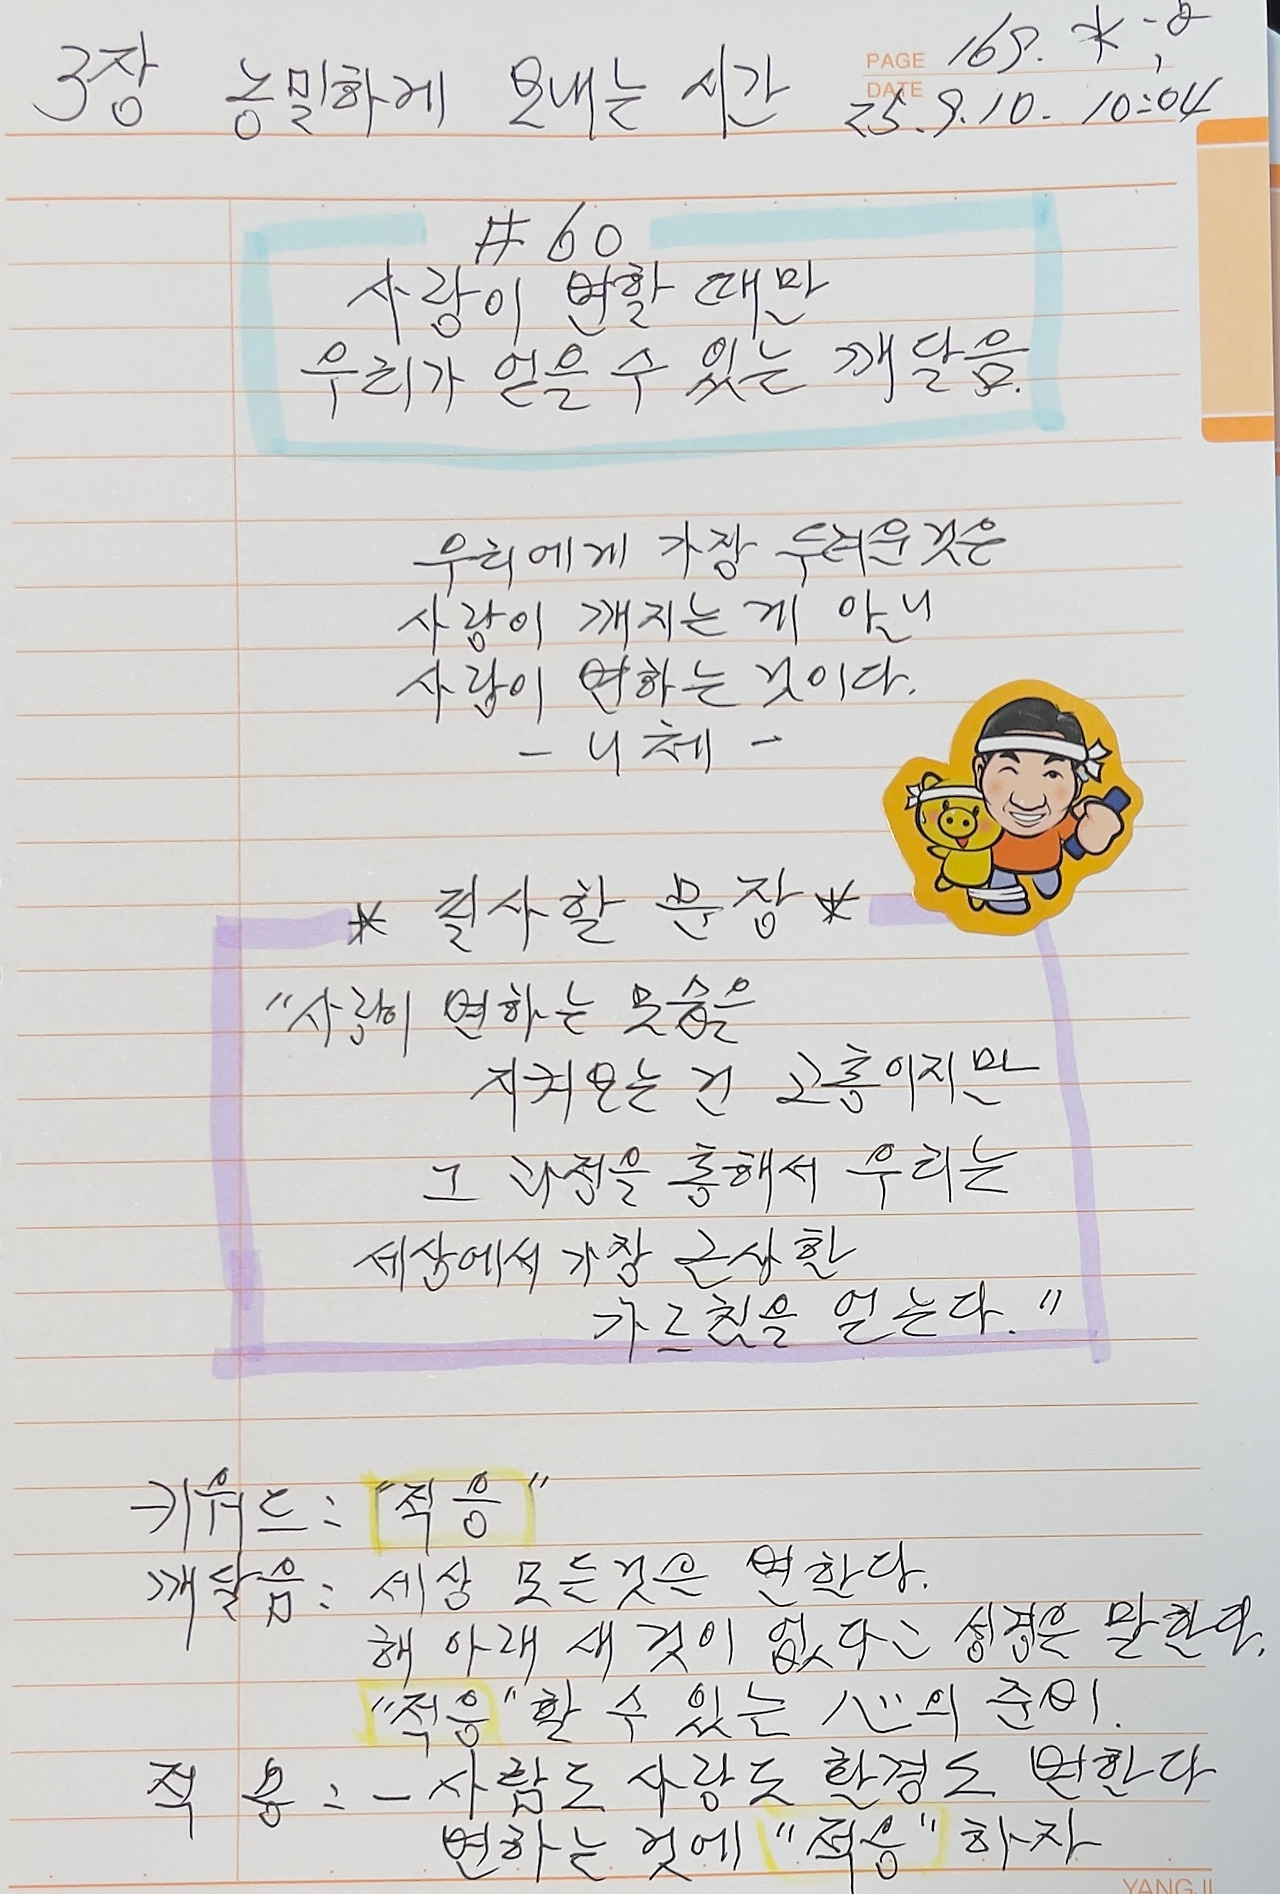 3장 농밀하게 보내는 시간
PAGE 169. 水;
DATE 25.9.10. 10:04
#60
사랑이 변할 때만
우리가 얻을 수 있는 깨달음.
우리에게 가장 두려운것은
사랑이 깨지는 게 아니
사랑이 변하는 것이다.
- 니체 -
* 필사할 문장 *
"사랑이 변하는 모습을
지켜보는 건 고통이지만
그 과정을 통해서 우리는
세상에서 가장 근사한
가르침을 얻는다."
키워드: "적응"
깨달음: 세상 모든것은 변한다.
해 아래 새 것이 없다는 성경은 말한다.
"적응"할 수 있는 心의 준비.
적 용: - 사람도 사랑도 환경도 변한다
변하는 것에 "적응"하자
YANGJI